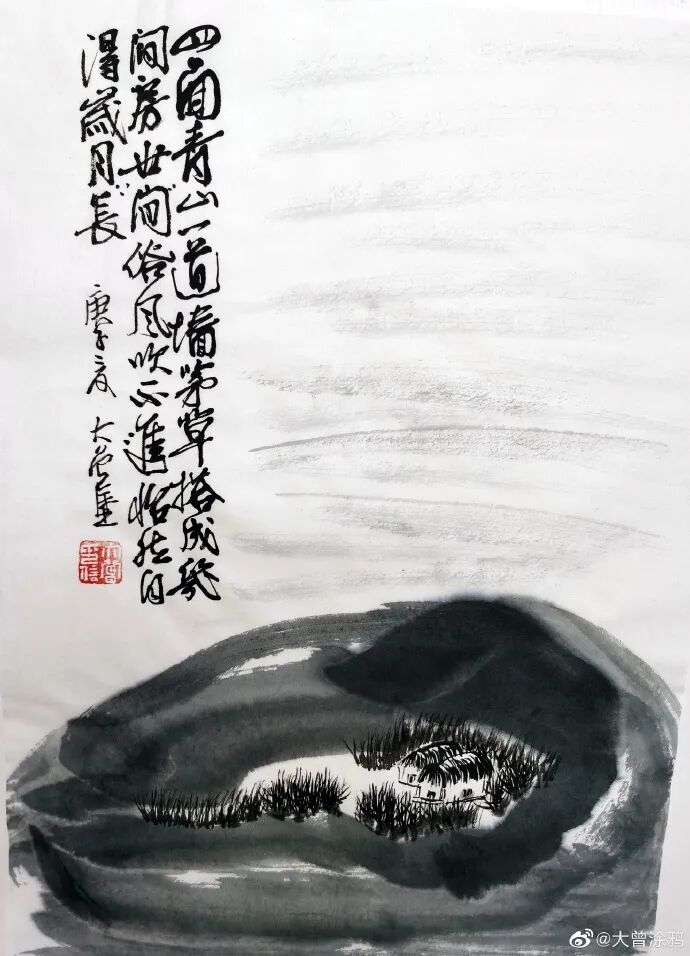 四面青山一道墙茅草搭成幾
间房世间俗风吹不進怡然自
得歲月長
庚子夏 大曾
@大曾涂鸦